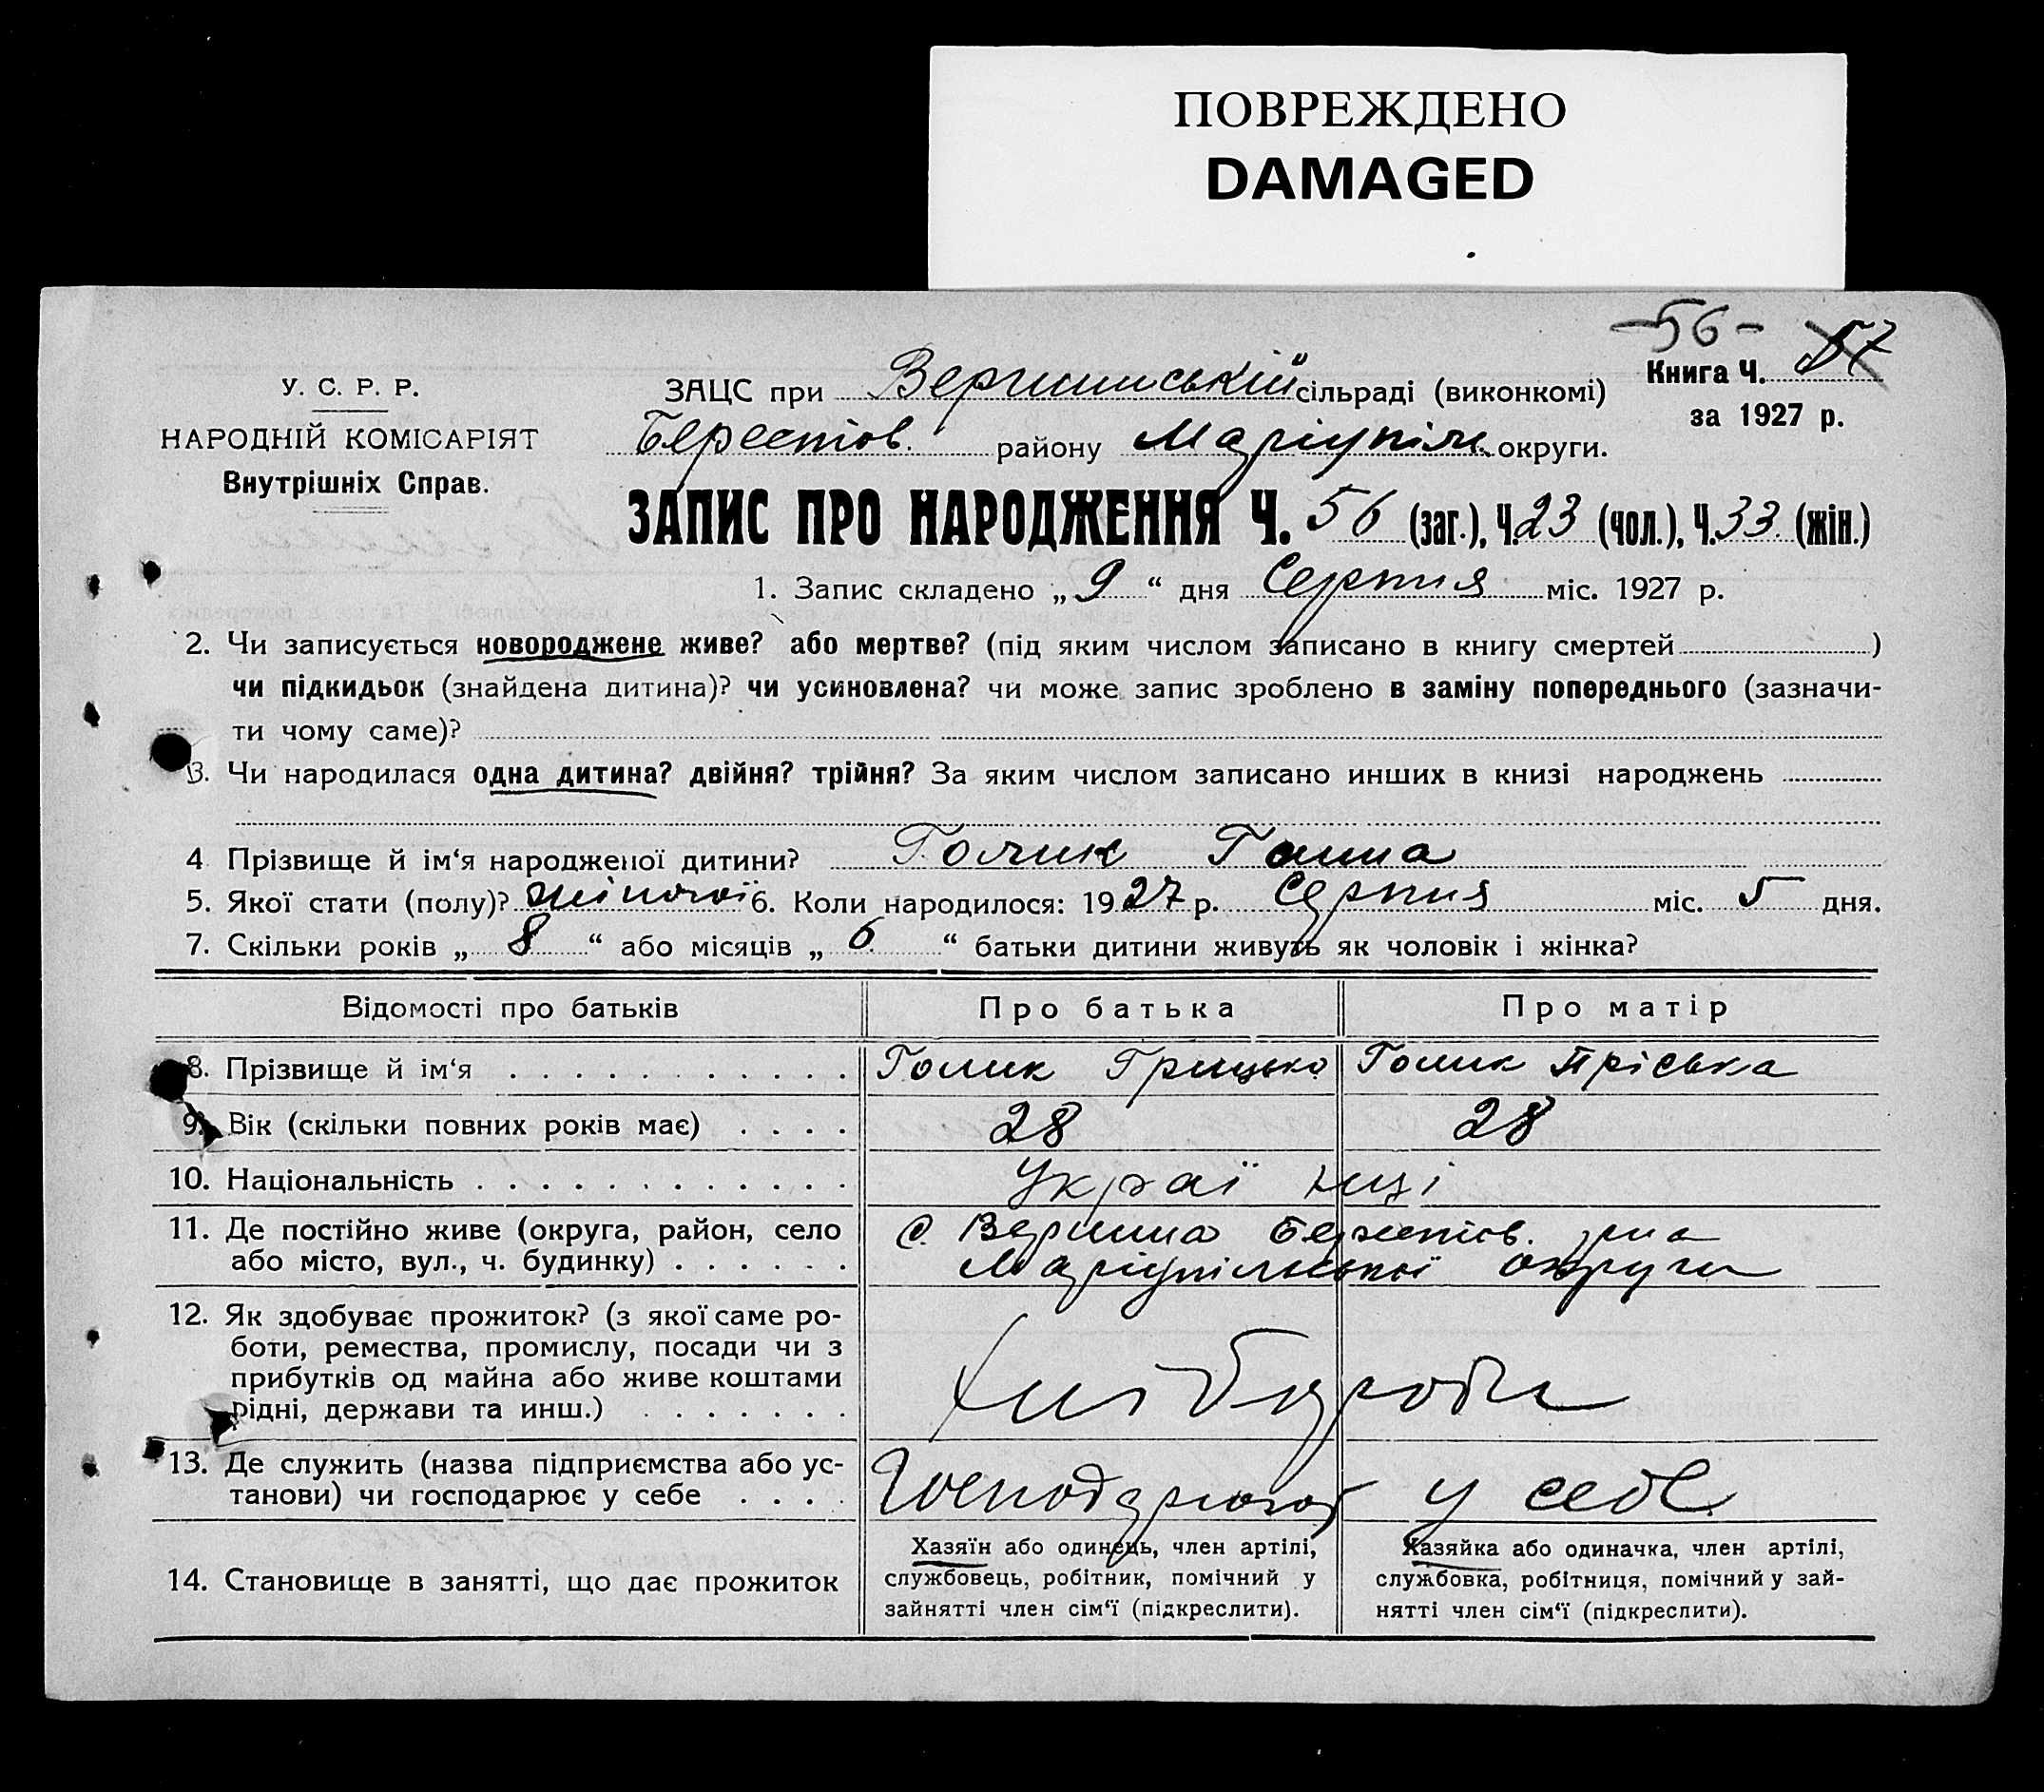 ПОВРЕЖДЕНО
DAMAGED
-56-
У. С. Р. Р.
НАРОДНІЙ КОМІСАРІЯТ
Внутрішніх Справ.
Книга Ч. 57
за 1927 р.
ЗАЦС при Вершинській сільраді (виконкомі)
Берестов. району Маріупіль. округи.
ЗАПИС ПРО НАРОДЖЕННЯ Ч. 56 (заг.), Ч. 23 (чол.), Ч. 33 (жін.)
1. Запис складено „ 9 “ дня Серпня міс. 1927 р.
2. Чи записується новороджене живе? або мертве? (під яким числом записано в книгу смертей )
чи підкидьок (знайдена дитина)? чи усиновлена? чи може запис зроблено в заміну попереднього (зазначи-
ти чому саме)?
3. Чи народилася одна дитина? двійня? трійня? За яким числом записано инших в книзі народжень
4 Прізвище й ім‘я народженої дитини? Голик Ганна
5. Якої стати (полу)? жіночої 6. Коли народилося: 1927 р. Серпня міс. 5 дня.
7. Скільки років „ 8 “ або місяців „ 6 “ батьки дитини живуть як чоловік і жінка?
Відомості про батьків Про батька Про матір
8. Прізвище й ім‘я Голик Грицько Голик Пріська
9. Вік (скільки повних років має) 28 28
10. Національність Украї нці
11. Де постійно живе (округа, район, село с. Вершина Берестов. р-на
або місто, вул., ч. будинку) Маріупільської округи
12. Як здобуває прожиток? (з якої саме ро-
боти, ремества, промислу, посади чи з
прибутків од майна або живе коштами
рідні, держави та инш.) Хліборобн
13. Де служить (назва підприємства або ус-
танови) чи господарює у себе Господарюют у себе
14. Становище в занятті, що дає прожиток
Хазяїн або одинець, член артілі,
службовець, робітник, помічний у
зайнятті член сім‘ї (підкреслити).
Хазяйка або одиначка, член артілі,
службовка, робітниця, помічний у зай-
нятті член сім‘ї (підкреслити).